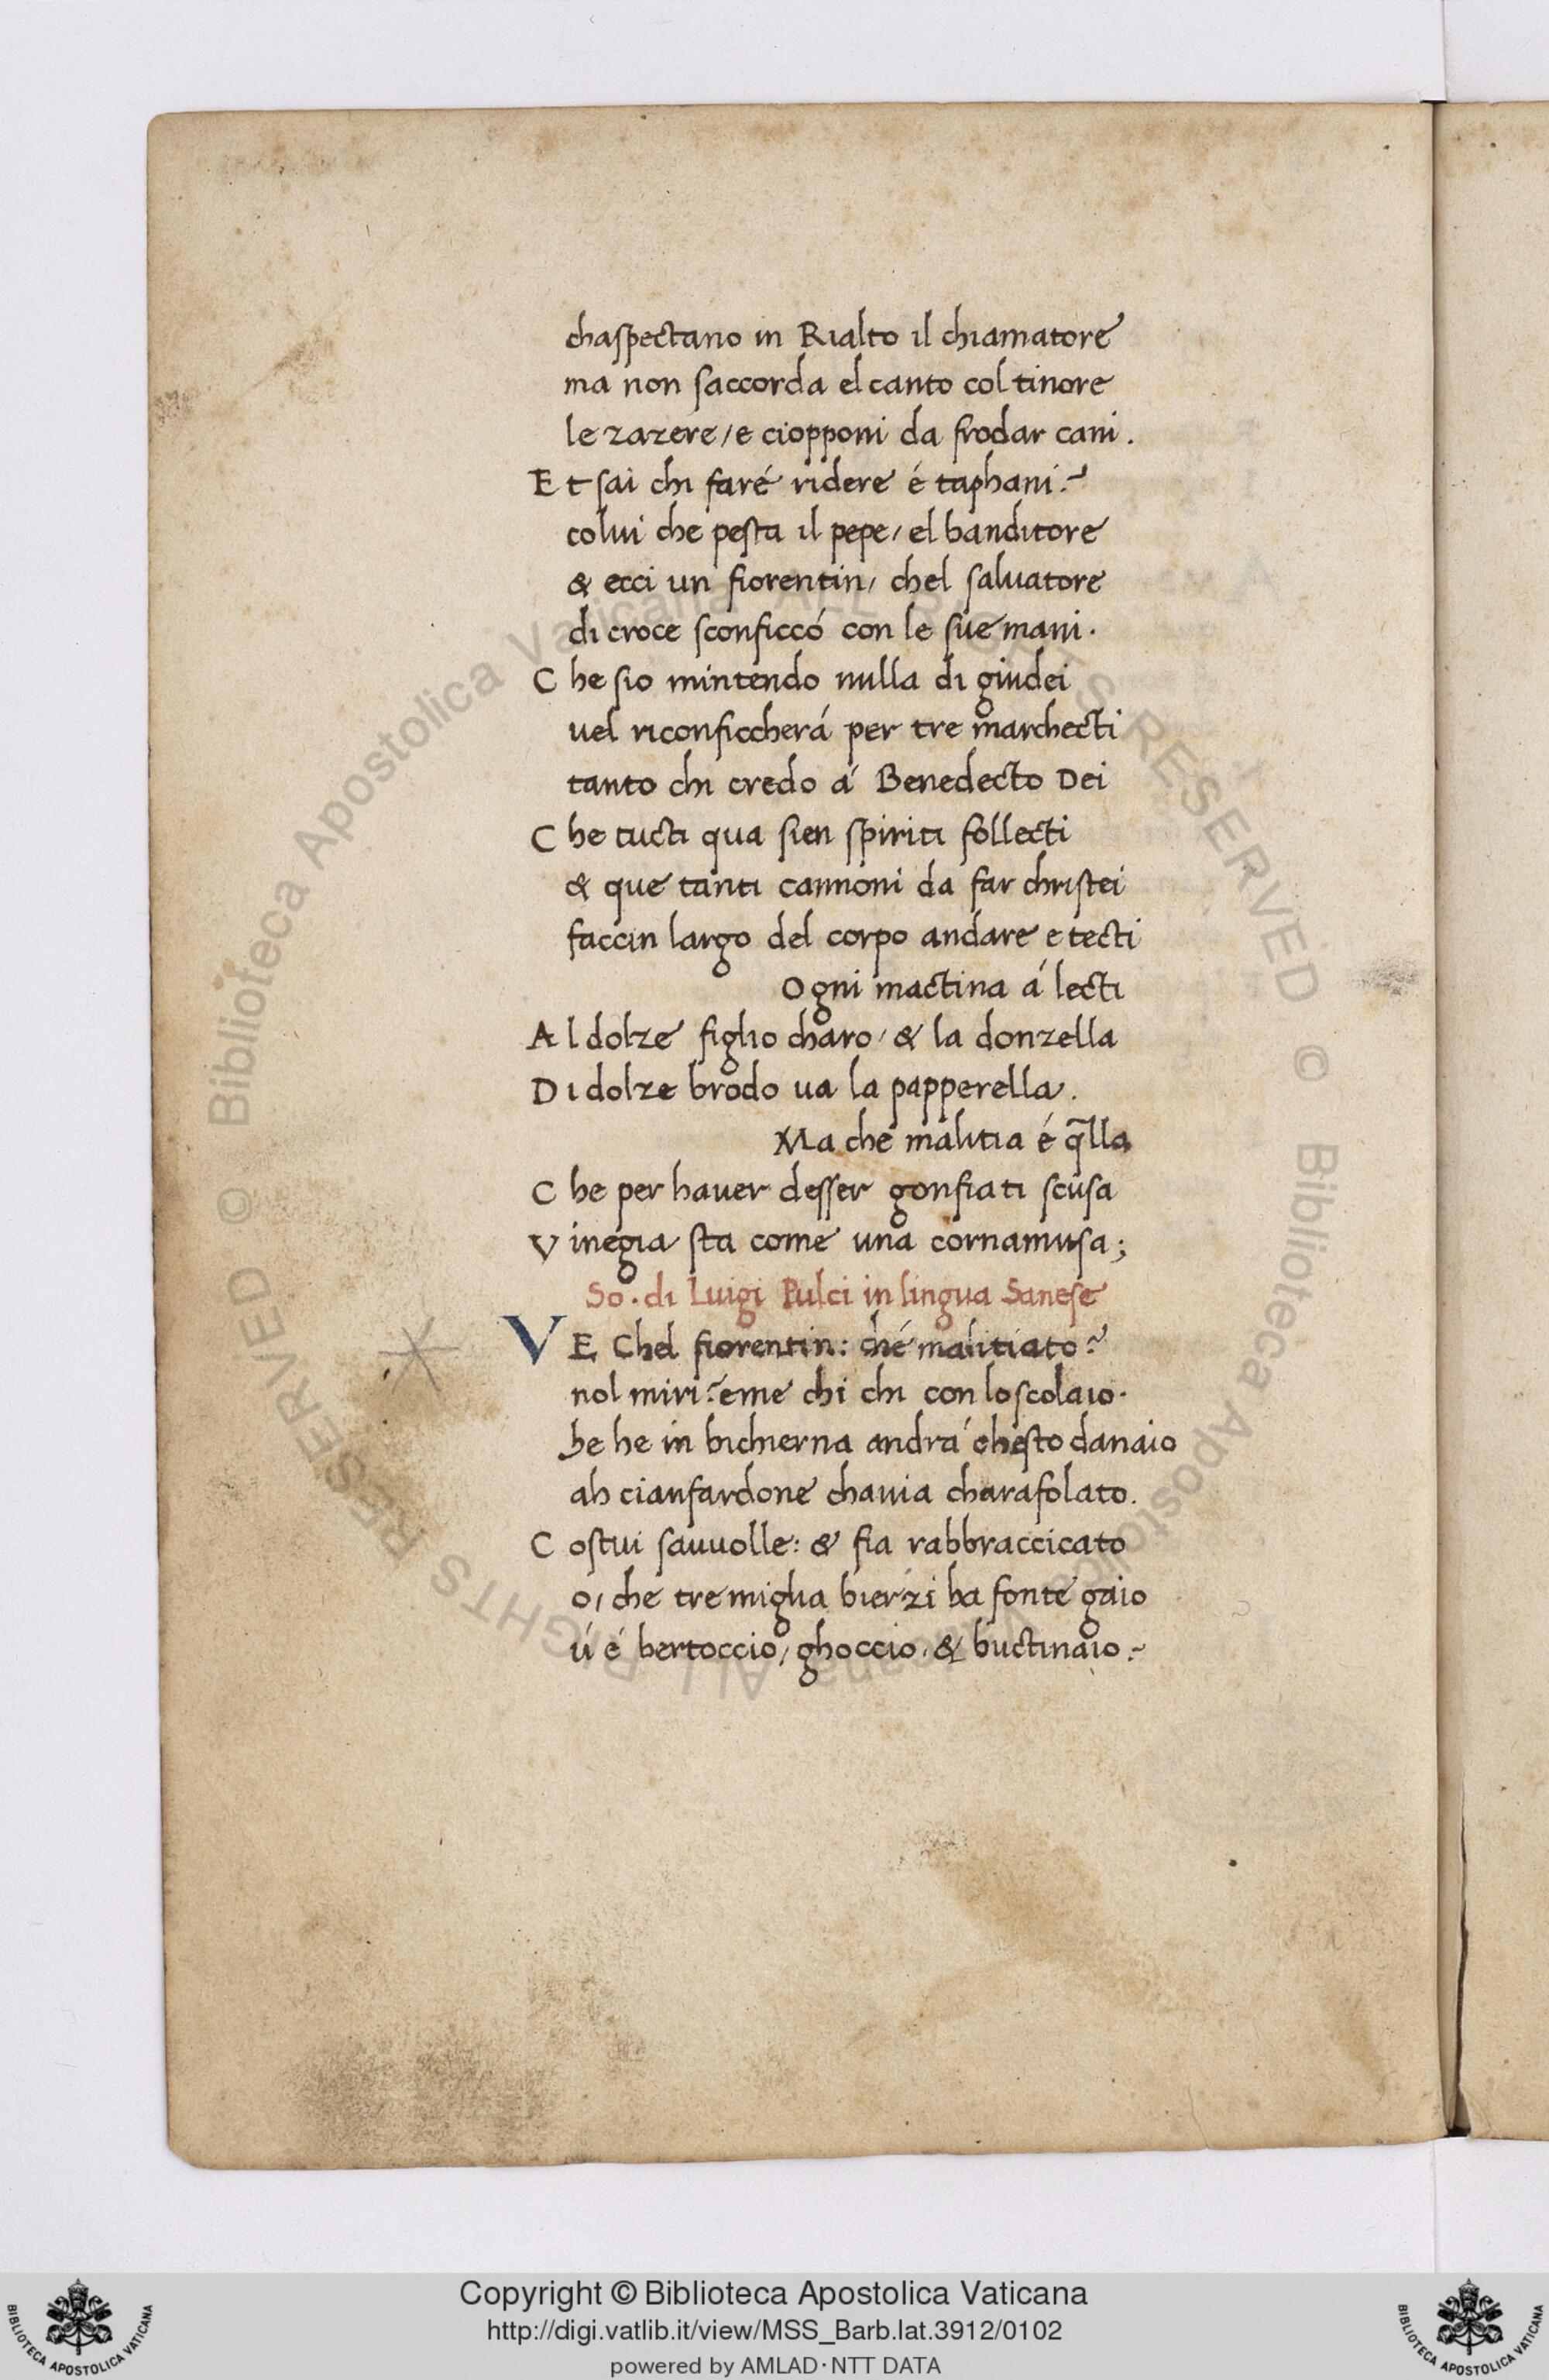 chaſpectano in Rialto il chiamatore
ma non ſaccorda el canto col tinore
le zazere/e ciopponi da frodar cani.
Et ſai chi faré ridere é taphani?
colui che peſta il pepe/el banditore
& ecci un fiorentin/ chel ſaluatore
di croce ſconficcó con le sue mani.
Che ſio mintendo nulla di giudei
uel riconficcherá per tre marchecti
tanto chi credo á Benedecto Dei
Che tucti qua ſien ſpiriti follecti
& que tanti cannoni da far chriſtei
faccin largo del corpo andare e tecti
Ogni mactina á lecti
Al dolze figlio charo/ & la donzella
Di dolze brodo ua la papperella.
Ma che malitia é q̄lla
Che per hauer deſſer gonfiati scusa
Vinegia ſta come una cornamusa;
So. di Luigi Pulci in lingua Saneſe
VE Chel fiorentin: ché malitiato?
nol miri? eme chi chi con lo ſcolaio.
he he in bichierna andrá cheſto danaio
ah cianfardone chauia charafolato.
Coſtui ſauuolle: & fia rabbraccicato
o/ che tre miglia bierzi ha fonte gaio
ú é bertoccio/ ghoccio/ & buctinaio?
Copyright © Biblioteca Apostolica Vaticana
http://digi.vatlib.it/view/MSS_Barb.lat.3912/0102
powered by AMLAD·NTT DATA
BIBLIOTECA APOSTOLICA VATICANA
BIBLIOTECA APOSTOLICA VATICANA
© Biblioteca Apostolica Vaticana ALL RIGHTS RESERVED © Biblioteca Apostolica Vaticana ALL RIGHTS RESERVED